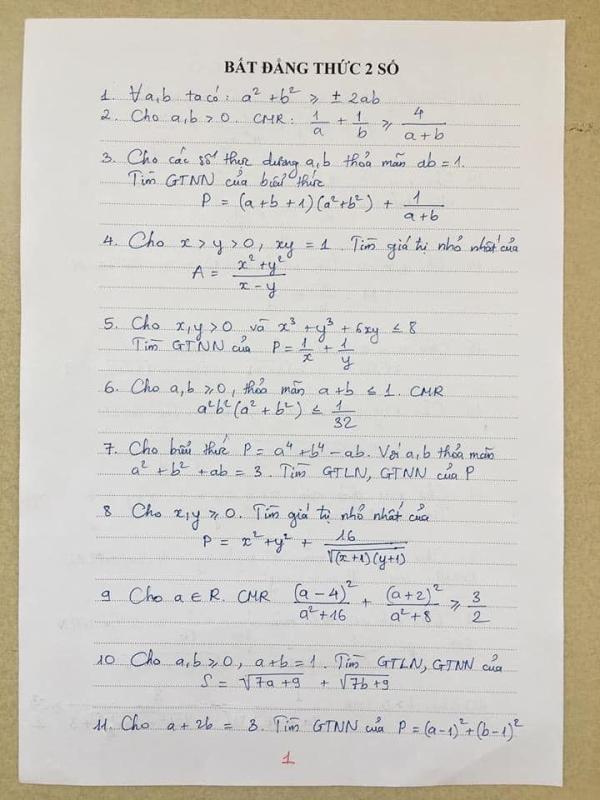 BẤT ĐẲNG THỨC 2 SỐ
1. ∀a,b ta có: a² + b² ≥ ± 2ab
2. Cho a,b > 0. CMR: 1/a + 1/b ≥ 4/(a+b)
3. Cho các số thực dương a,b thỏa mãn ab = 1.
Tìm GTNN của biểu thức
P = (a+b+1)(a²+b²) + 1/(a+b)
4. Cho x > y > 0, xy = 1. Tìm giá trị nhỏ nhất của
A = (x²+y²)/(x-y)
5. Cho x,y > 0 và x³ + y³ + 6xy ≤ 8
Tìm GTNN của P = 1/x + 1/y
6. Cho a,b ≥ 0, thỏa mãn a+b ≤ 1. CMR
a²b²(a²+b²) ≤ 1/32
7. Cho biểu thức P = a⁴ + b⁴ - ab. Với a,b thỏa mãn
a² + b² + ab = 3. Tìm GTLN, GTNN của P
8 Cho x,y ≥ 0. Tìm giá trị nhỏ nhất của
P = x² + y² + 16/√((x+1)(y+1))
9 Cho a ∈ R. CMR (a-4)²/(a²+16) + (a+2)²/(a²+8) ≥ 3/2
10 Cho a,b ≥ 0, a+b = 1. Tìm GTLN, GTNN của
S = √(7a+9) + √(7b+9)
11. Cho a + 2b = 8. Tìm GTNN của P = (a-1)² + (b-1)²
1